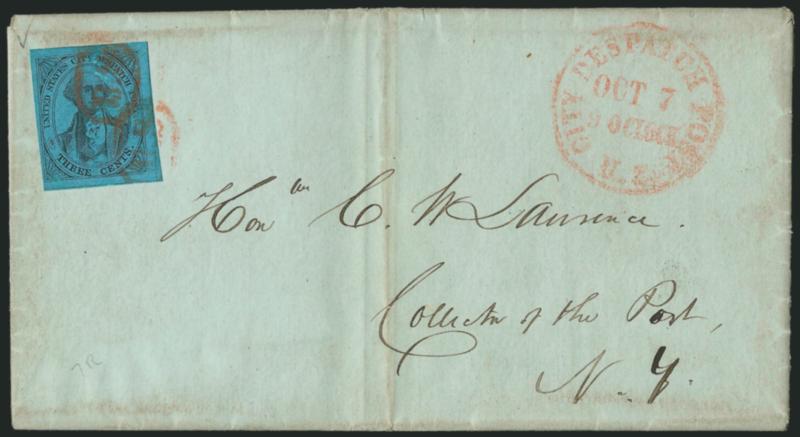 UNITED STATES CITY DESPATCH POST
THREE CENTS.
CITY DESPATCH POST
OCT 7
9 OCLOCK
U.S.
Honble C. W Lawrence.
Collector of the Port,
N. Y.
7R